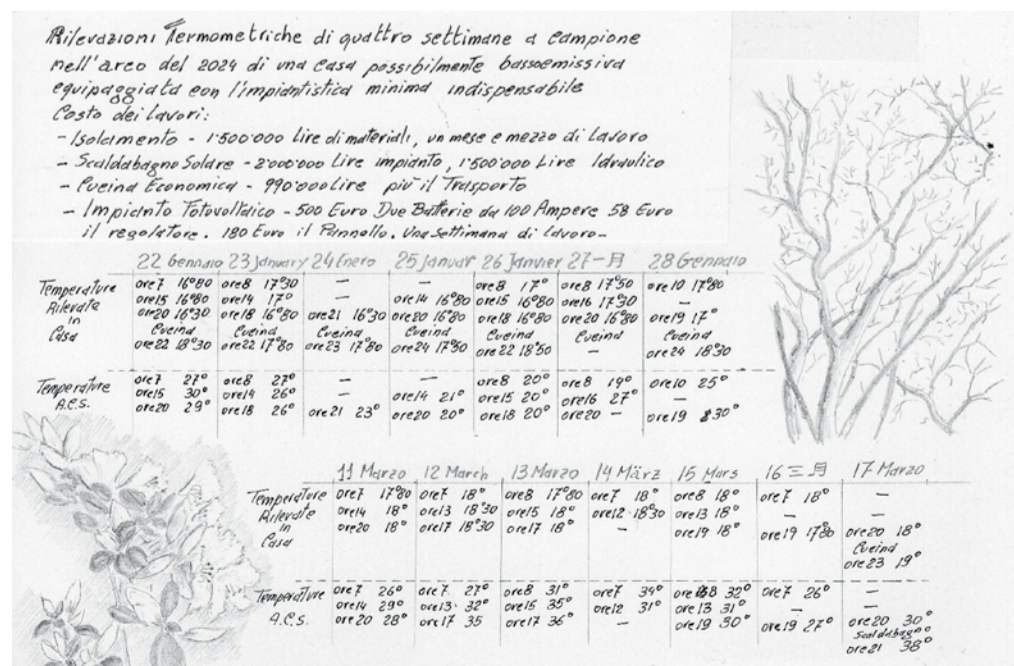 Rilevazioni Termometriche di quattro settimane a campione
nell'arco del 2024 di una casa possibilmente bassoemissiva
equipaggiata con l'impiantistica minima indispensabile
Costo dei Lavori:
- Isolamento - 1'500'000 Lire di materiali, un mese e mezzo di Lavoro
- Scaldabagno Solare - 2'000'000 Lire impianto, 1'500'000 Lire Idraulico
- Cucina Economica - 990'000 Lire più il Trasporto
- Impianto Fotovoltaico - 500 Euro Due Batterie da 100 Ampere 58 Euro
il regolatore. 180 Euro il Pannello. Una settimana di Lavoro-
22 Gennaio 23 January 24 Enero 25 Januar 26 Janvier 27 一月 28 Gennaio
Temperature Rilevate in Casa
ore7 16°80 ore8 17°30 – – ore8 17° ore8 17°50 ore10 17°80
ore15 16°80 ore14 17° – ore14 16°80 ore15 16°80 ore16 17°30 –
ore20 16°30 ore18 16°80 ore21 16°30 ore20 16°80 ore18 16°80 ore20 16°80 ore19 17°
Cucina Cucina Cucina Cucina Cucina Cucina Cucina
ore22 18°30 ore22 17°80 ore23 17°80 ore24 17°50 ore22 18°50 – ore24 18°30
Temperature A.C.S.
ore7 27° ore8 27° – – ore8 20° ore8 19° ore10 25°
ore15 30° ore14 26° – ore14 21° ore15 20° ore16 27° –
ore20 29° ore18 26° ore21 23° ore20 20° ore18 20° ore20 – ore19 30°
11 Marzo 12 March 13 Marzo 14 März 15 Mars 16 三月 17 Marzo
Temperature Rilevate in Casa
ore7 17°80 ore7 18° ore8 17°80 ore7 18° ore8 18° ore7 18° –
ore14 18° ore13 18°30 ore15 18° ore12 18°30 ore13 18° – –
ore20 18° ore17 18°30 ore17 18° – ore19 18° ore19 17°80 ore20 18°
Cucina
ore23 19°
Temperature A.C.S.
ore7 26° ore7 27° ore8 31° ore7 34° ore8 32° ore7 26° –
ore14 29° ore13 32° ore15 35° ore12 31° ore13 31° – –
ore20 28° ore17 35 ore17 36° – ore19 30° ore19 27° ore20 30°
Scaldabagno
ore21 38°